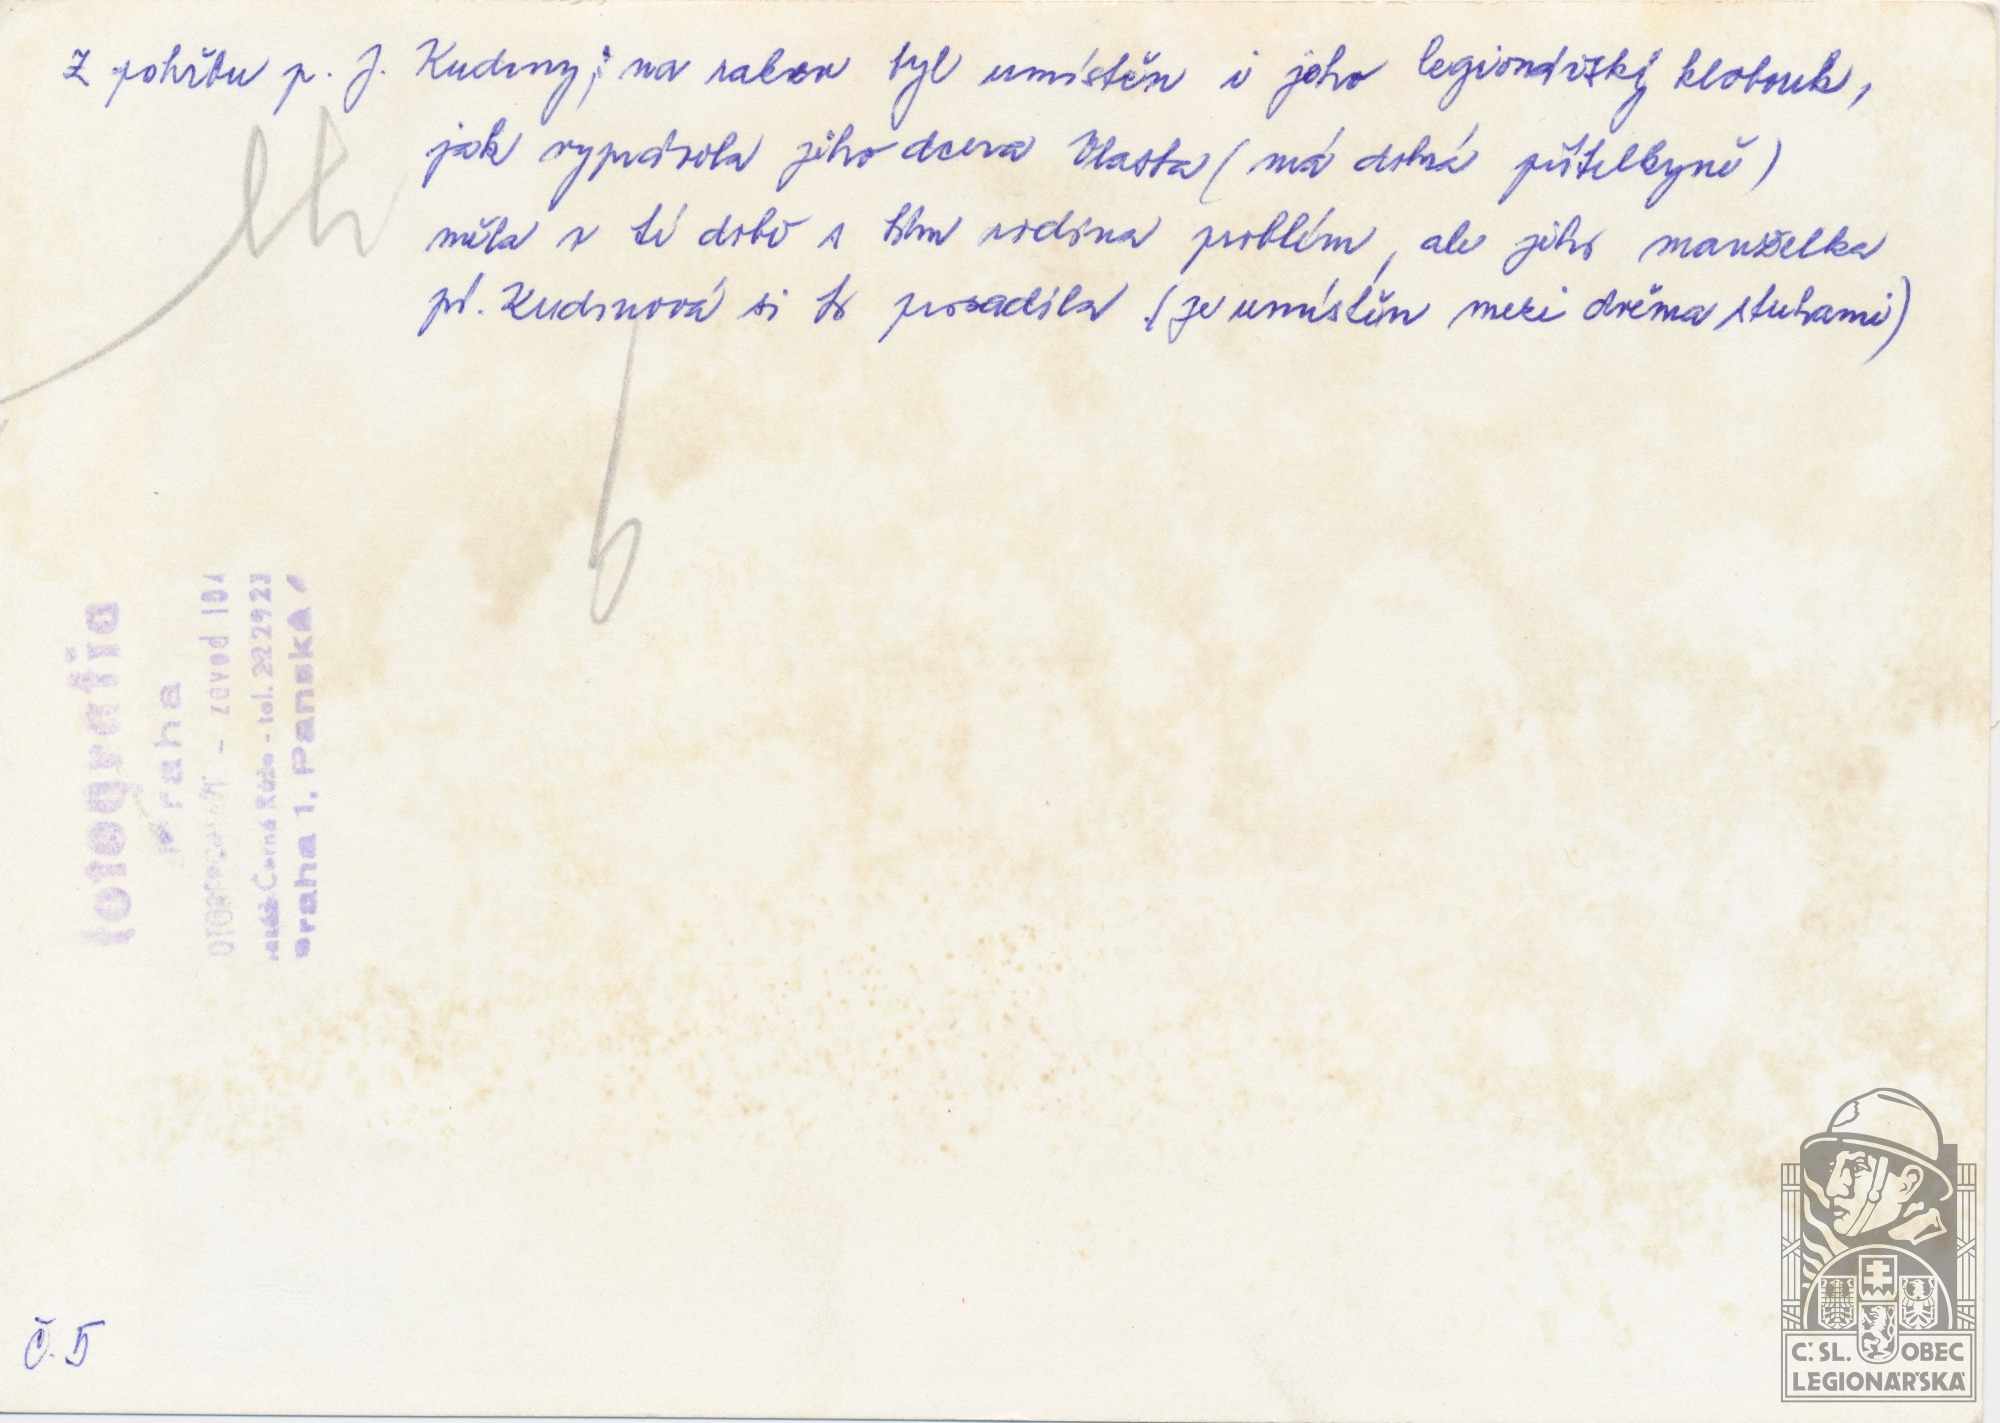 Z pohřbu p. J. Kudrny; na rakev byl umístěn i jeho legionářský klobouk,
jak vyprávěla jeho dcera Vlasta (má dobrá přítelkyně)
měla v té době s tím rodina problém, ale jeho manželka
pí. Kudrnová si to prosadila (je umístěn mezi dvěma stuhami)
fotografia
Praha
závod 101
Černá Růže - tel. 22 29 23
Praha 1, Panská
č. 5
Č. SL. OBEC
LEGIONÁŘSKÁ